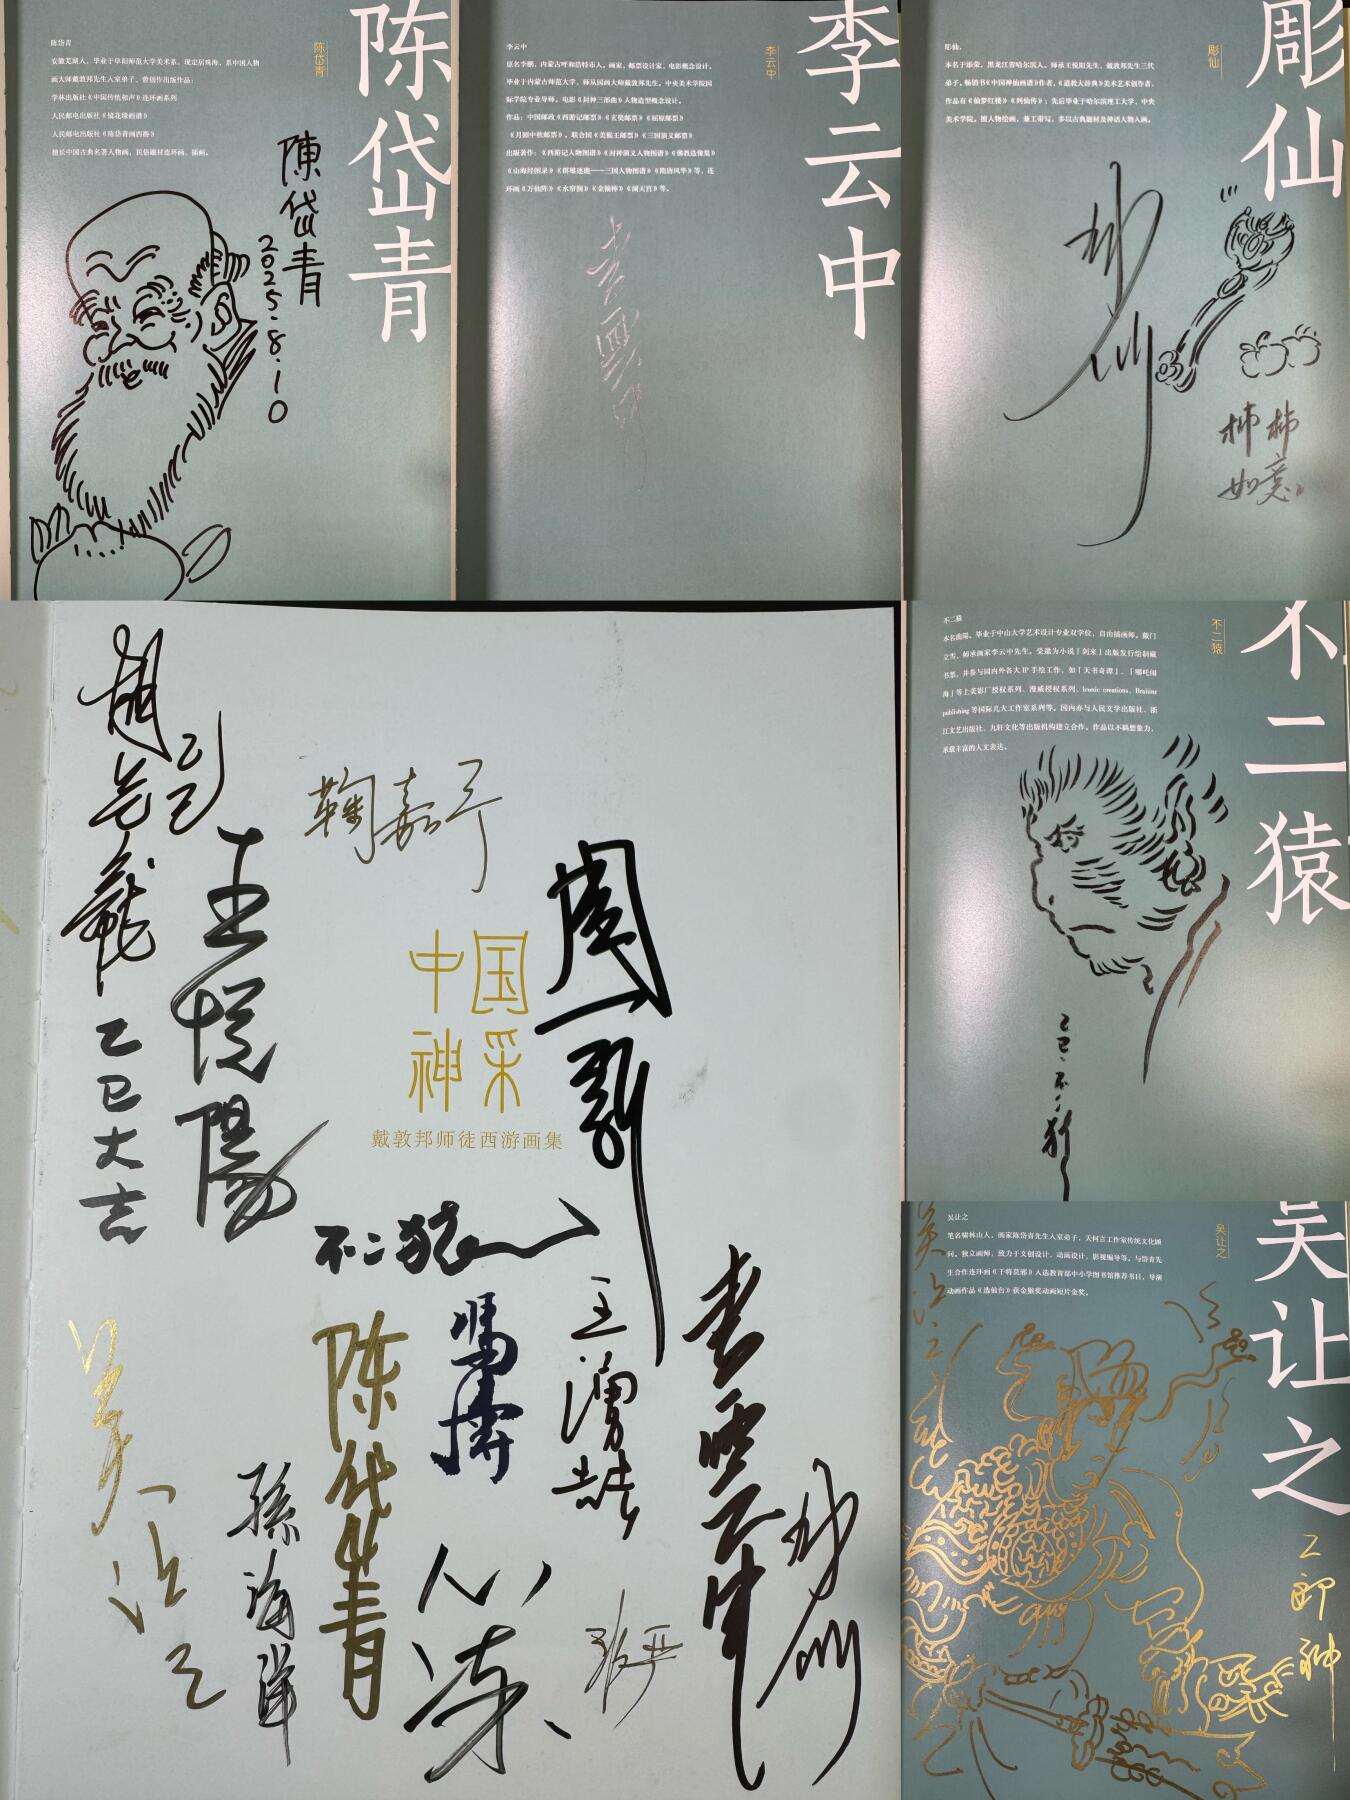 陈岱青
陈岱青
陈岱青
安徽芜湖人，毕业于阜阳师范大学美术系，现定居珠海，系中国人物
画大师戴敦邦先生入室弟子，曾创作出版作品：
学林出版社《中国传统相声》连环画系列
人民邮电出版社《镜花缘画谱》
人民邮电出版社《陈岱青画西游》
擅长中国古典名著人物画，民俗题材连环画、插画。
陳岱青
2025.8.10
李云中
李云中
李云中
原名李鹏，内蒙古呼和浩特市人。画家、邮票设计家、电影概念设计。
毕业于内蒙古师范大学，师从国画大师戴敦邦先生。中央美术学院国
际学院专业导师。电影《封神三部曲》人物造型概念设计。
作品：中国邮政《西游记邮票》《玄奘邮票》《屈原邮票》
《月圆中秋邮票》。联合国《美猴王邮票》《三国演义邮票》
出版著作：《西游记人物图谱》《封神演义人物图谱》《佛教造像集》
《山海经图录》《群雄逐鹿——三国人物图谱》《隋唐风华》等，连
环画《万仙阵》《水帘洞》《金箍棒》《闹天宫》等。
李雲中
彫仙
彫仙
彫仙，
本名于添荣，黑龙江省哈尔滨人。师承王悦阳先生、戴敦邦先生三代
弟子。畅销书《中国神仙画谱》作者，《道教大辞典》美术艺术创作者，
作品有《仙梦红楼》《列仙传》；先后毕业于哈尔滨理工大学，中央
美术学院。擅人物绘画，兼工带写，多以古典题材及神话人物入画。
彫仙
柿柿
如意
乙巳
乙巳大吉
王悦陽
鞠嘉予
中国
神采
戴敦邦师徒西游画集
不二猿
陈岱青
孫海洋
李雲中
彫仙
吴让之
不二猿
不二猿
不二猿
本名曲陽，毕业于中山大学艺术设计专业双学位，自由插画师。戴门
立雪，师承画家李云中先生。受邀为小说「剑来」出版发行绘制藏
书票，并参与国内外各大IP手绘工作，如「天书奇谭」、「哪吒闹
海」等上美影厂授权系列、漫威授权系列、Iconic creations、
publishing等国际几大工作室系列等。国内亦与人民文学出版社、浙
江文艺出版社、九轩文化等出版机构建立合作。作品以不羁想象力，
承载丰富的人文表达。
乙巳.不二猿
吴让之
吴让之
吴让之
笔名啸林山人，画家陈岱青先生入室弟子，天柯言工作室传统文化顾
问。独立画师，致力于文创设计、动画设计、影视编导等。与岱青先
生合作连环画《干将莫邪》入选教育部中小学图书馆推荐书目，导演
动画作品《选仙台》获金猴奖动画短片金奖。
吴让之
二郎神